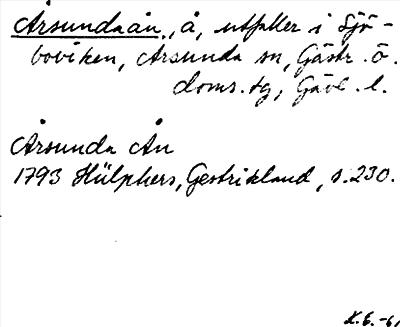 Årsundaån, å, utfaller i Sjö-
boviken, Årsunda sn, Gästr. ö.
doms.tg, Gävl. l.
Årsunda Ån
1793 Hülphers, Gestrikland, s.230.
K.E.-61